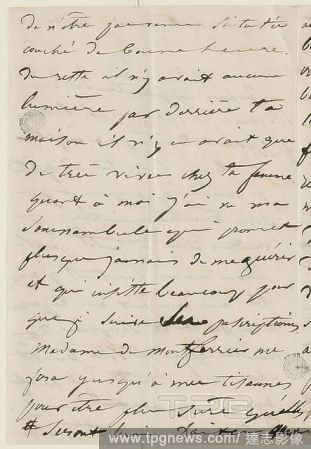 de n'être pas venue si tu t'es
couché de bonne heure.
du reste il n'y avait aucune
lumière par derrière ta
maison il n'y en avait que
de très vives chez ta femme
quant à moi j'ai vu ma
somnambule qui promet
plus que jamais de me guérir
et qui insiste beaucoup pour
que je suive ses
Madame de Montferrier me
fera jusqu'à mes tisanes
pour être plus sûre qu'elles
seront bien faites
TPG
www.tpgnews.com / 達志影像